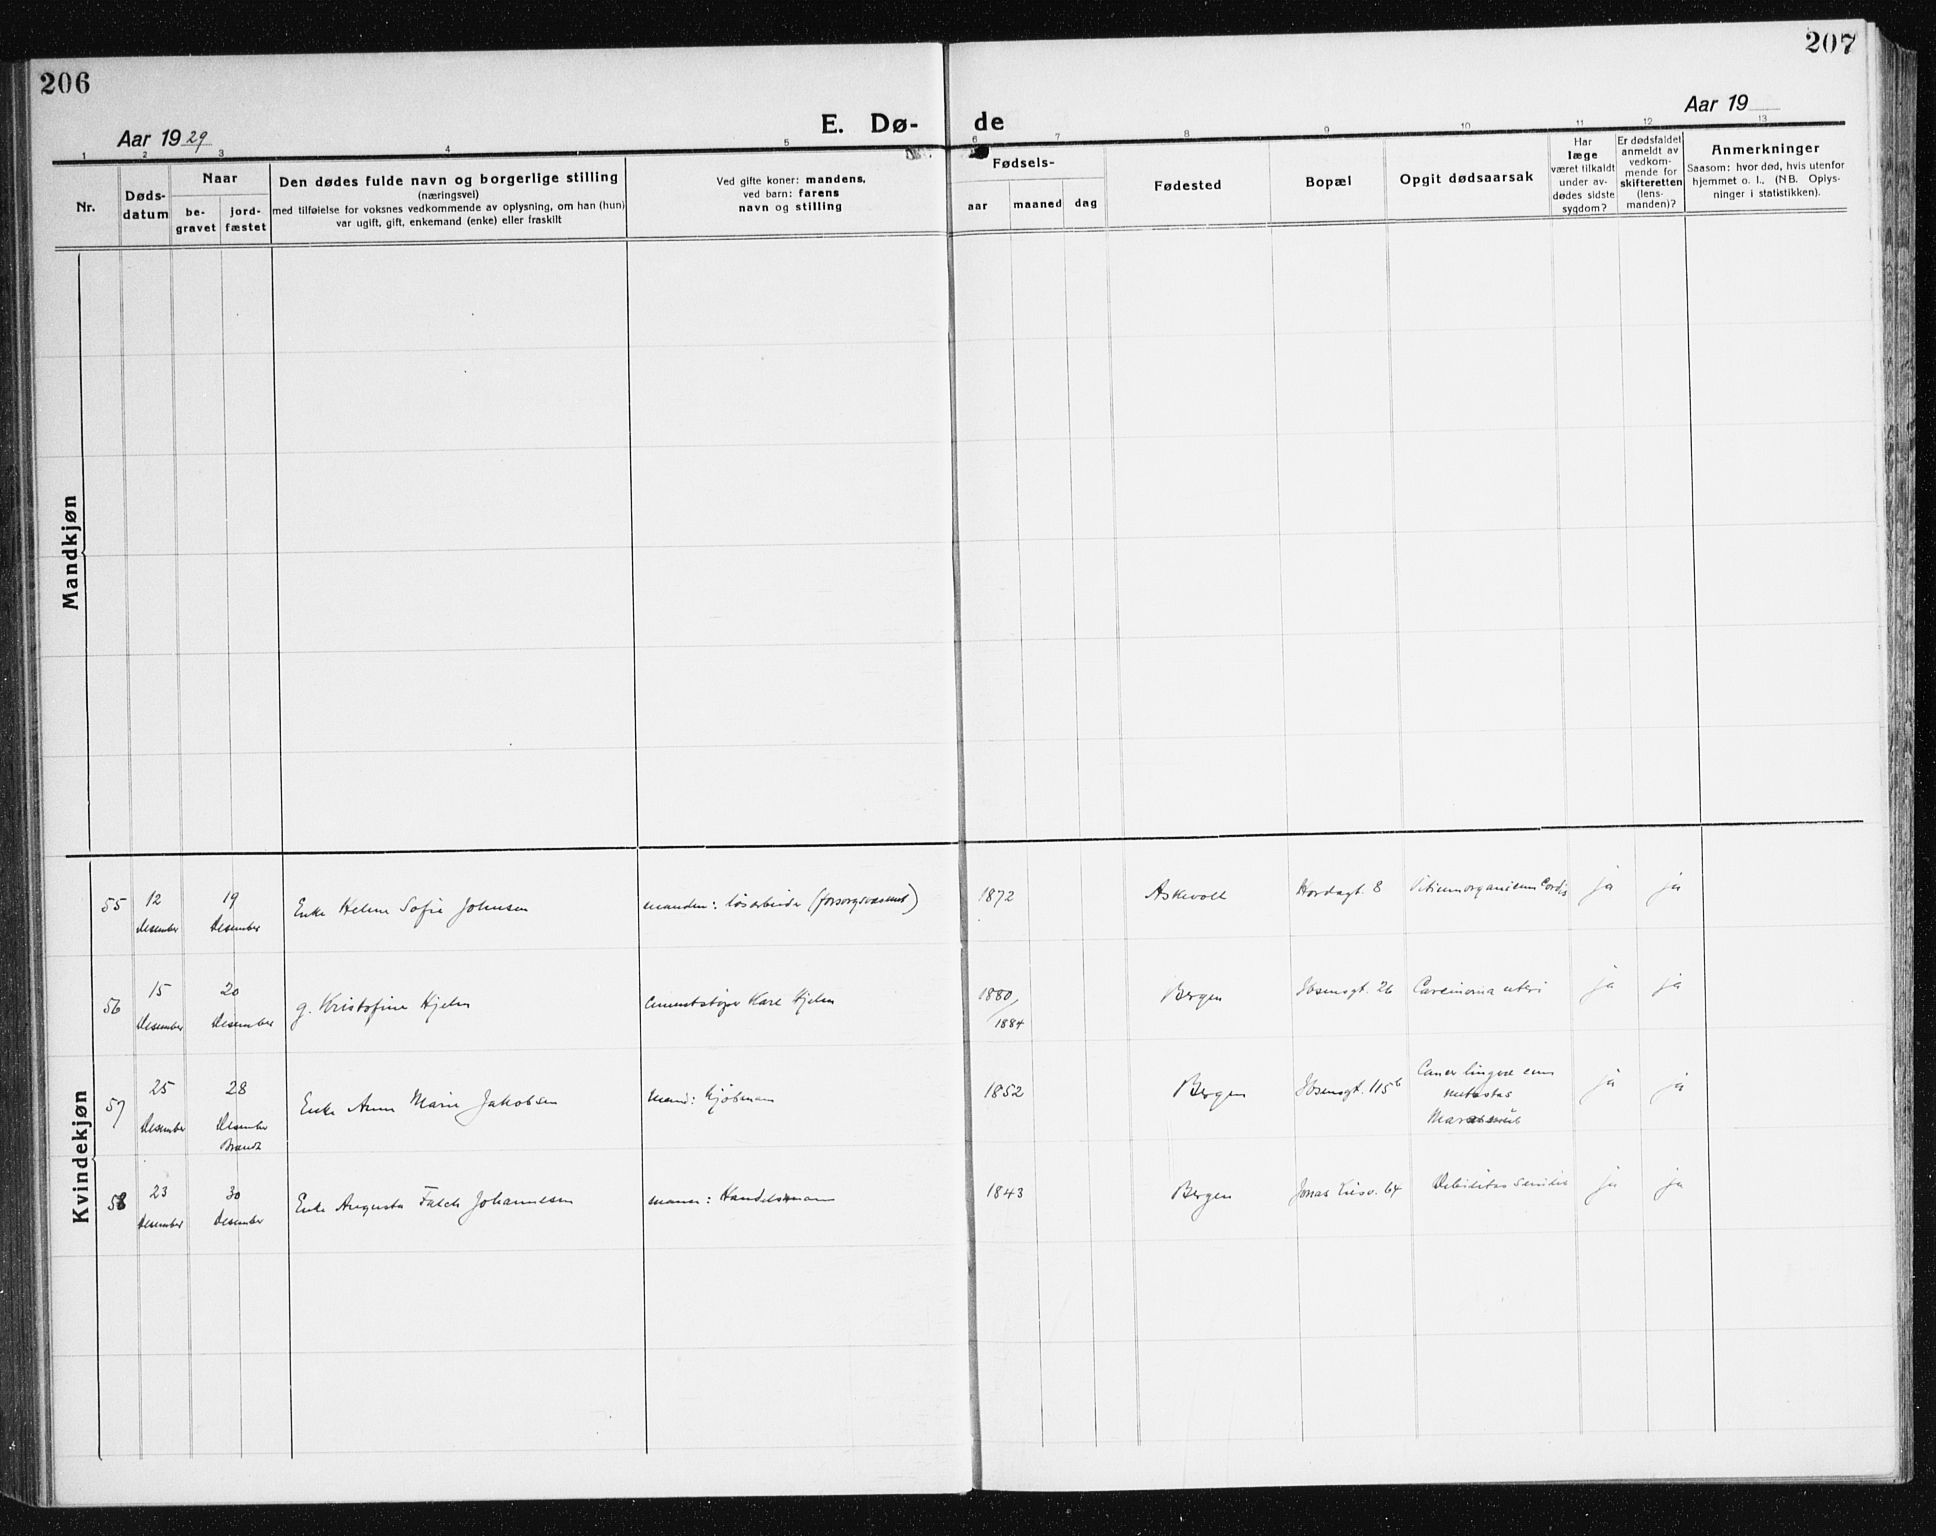 206
207
Aar 1929
E. Dø-
de
Aar 19
1 2 3 4 5 6 7 8 9 10 11 12 13
Nr.
Døds-
datum
Naar
be-
gravet
jord-
fæstet
Den dødes fulde navn og borgerlige stilling
(næringsvei)
med tilføielse for voksnes vedkommende av oplysning, om han (hun)
var ugift, gift, enkemand (enke) eller fraskilt
Ved gifte koner: mandens,
ved barn: farens
navn og stilling
Fødsels-
aar
maaned
dag
Fødested
Bopæl
Opgit dødsaarsak
Har
læge
været tilkaldt
under av-
dødes sidste
sygdom?
Er dødsfaldet
anmeldt av
vedkom-
mende for
skifteretten
(lens-
manden)?
Anmerkninger
Saasom: hvor død, hvis utenfor
hjemmet o. l., (NB. Oplys-
ninger i statistikken).
Mandkjøn
Kvindekjøn
55
12
Desember
19
Desember
Enke Helene Sofie Johnsen
manden: løsarbeider
1872
Askevoll
Hordagt. 8
Vitium organicum Cordis
ja
ja
56
15
Desember
20
Desember
g. Kristofine Hjelm
Cementstøper Karl Hjelm
1880/
1884
Bergen
Ibsensgt. 26
Carcinoma uteri
ja
ja
57
25
Desember
28
Desember
Brandt
Enke Anna Marie Jakobsen
mand: kjøbmann
1852
Bergen
Ibsensgt. 115b
Cancer linguae cum
metastas
ja
ja
58
23
Desember
30
Desember
Enke Augusta Falch Johannesen
mann: Handelsmann
1843
Bergen
Jonas Liesv. 64
Debilitas senilis
ja
ja